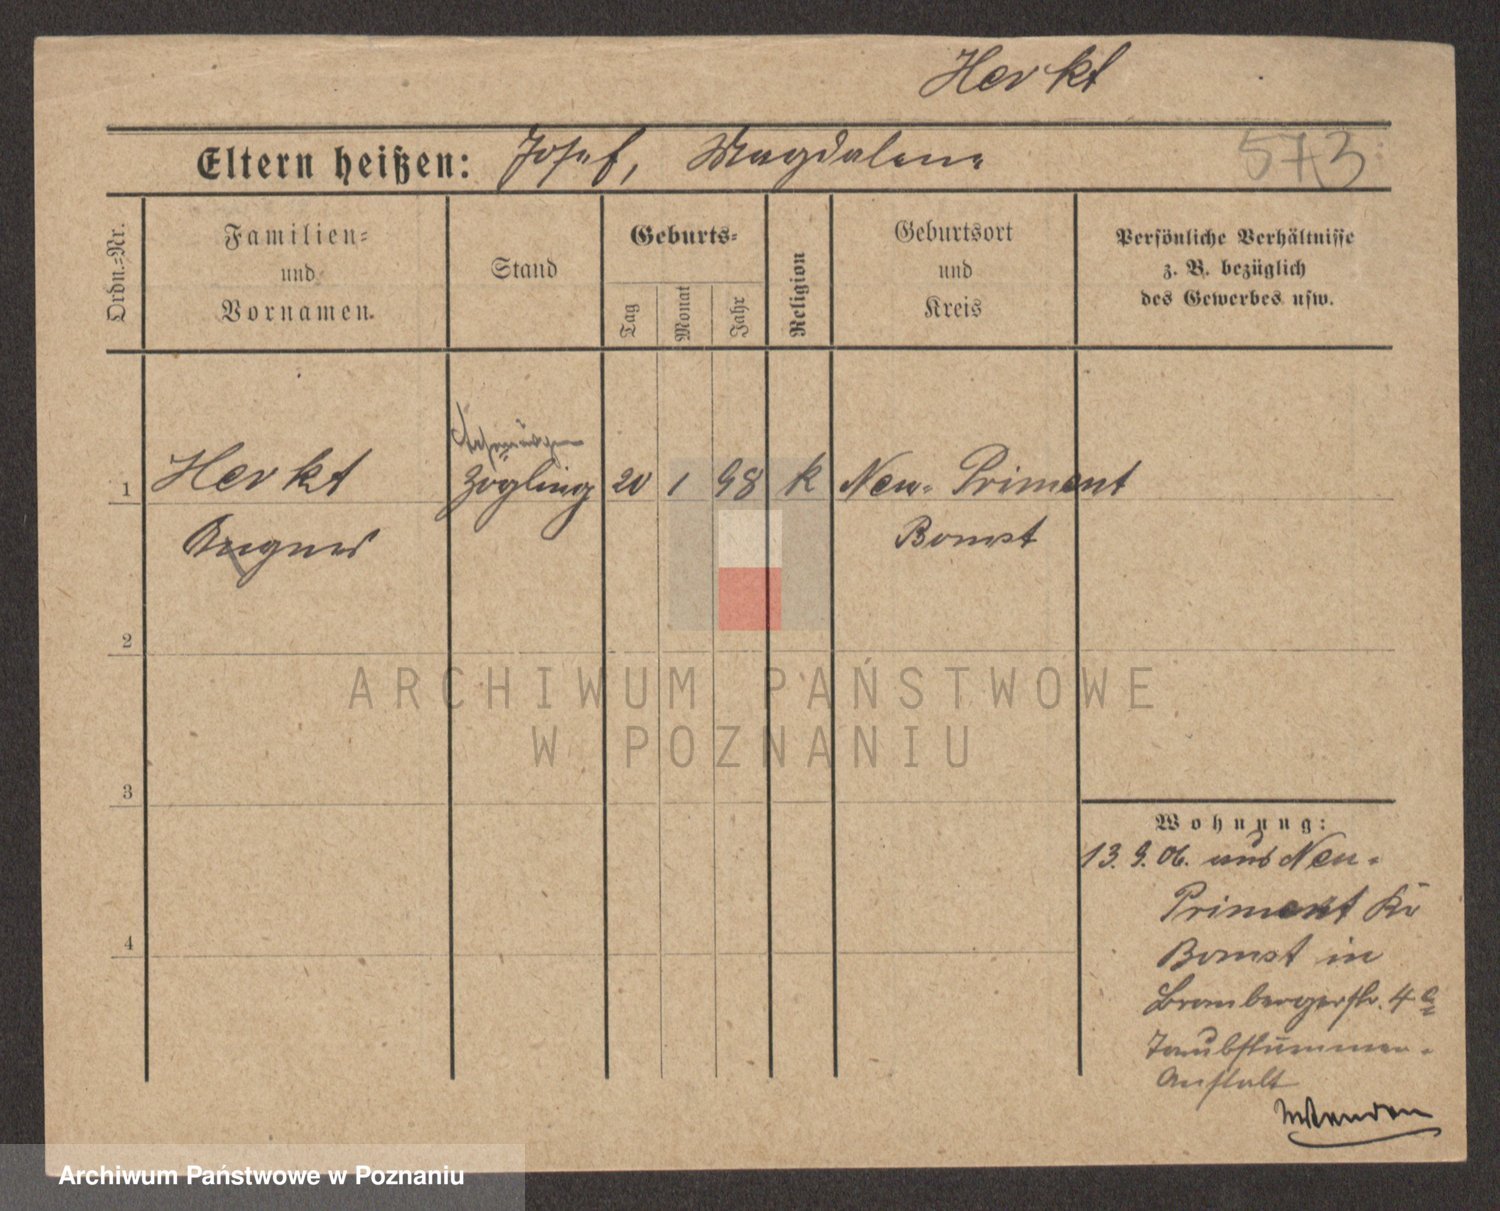 Herkt
Eltern heißen: Josef, Magdalena
573
Ordn.=Nr.
Familien=
und
Vornamen.
Stand
Geburts=
Tag
Monat
Jahr
Religion
Geburtsort
und
Kreis
Persönliche Verhältnisse
z. B. bezüglich
des Gewerbes usw.
1 Herkt Zögling 20 1 98 k Neu-Priment
Bomst
2
3
4
Wohnung:
13. 9. 06. aus Neu-
Priment Kr
Bomst in
Brombergerstr. 4
Taubstummen-
Anstalt
ARCHIWUM PAŃSTWOWE
W POZNANIU
Archiwum Państwowe w Poznaniu